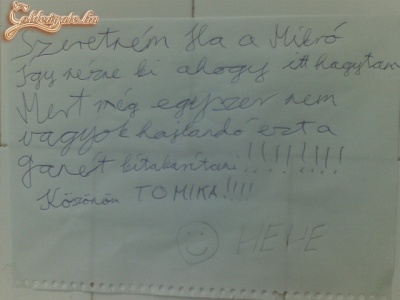 Gold.hu
Szeretném Ha a Mikró
Így nézne ki ahogy itt hagytam
Mert még egyszer nem
vagyok hajlandó ezt a
ganét kitakarítani!!!!!!!!
Köszönöm TOMIKA!!!!
HEHE